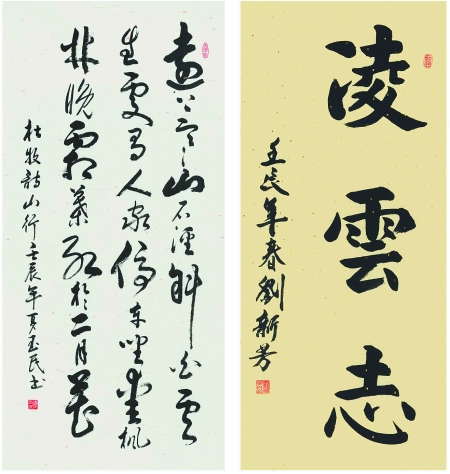 遠上寒山石徑斜白雲
生處有人家停車坐愛楓
林晚霜葉紅於二月花
杜牧詩山行壬辰年夏玉民书
凌雲志
壬辰年春劉新芳